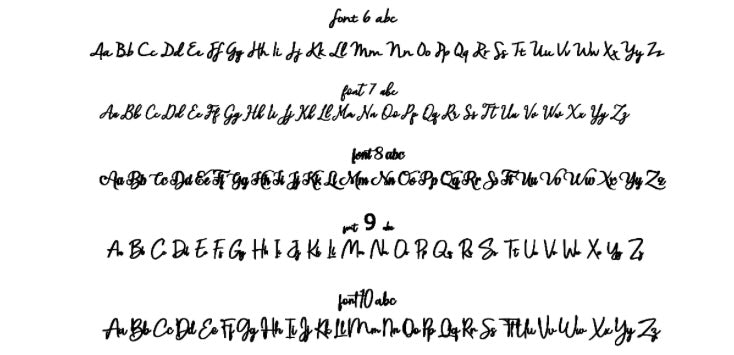 font 6 abc
Aa Bb Cc Dd Ee Ff Gg Hh Ii Jj Kk Ll Mm Nn Oo Pp Qq Rr Ss Tt Uu Vv Ww Xx Yy Zz
font 7 abc
Aa Bb Cc Dd Ee Ff Gg Hh Ii Jj Kk Ll Mm Nn Oo Pp Qq Rr Ss Tt Uu Vv Ww Xx Yy Zz
font 8 abc
Aa Bb Cc Dd Ee Ff Gg Hh Ii Jj Kk Ll Mm Nn Oo Pp Qq Rr Ss Tt Uu Vv Ww Xx Yy Zz
font 9 abc
Aa Bb Cc Dd Ee Ff Gg Hh Ii Jj Kk Ll Mm Nn Oo Pp Qq Rr Ss Tt Uu Vv Ww Xx Yy Zz
font 10 abc
Aa Bb Cc Dd Ee Ff Gg Hh Ii Jj Kk Ll Mm Nn Oo Pp Qq Rr Ss Tt Uu Vv Ww Xx Yy Zz